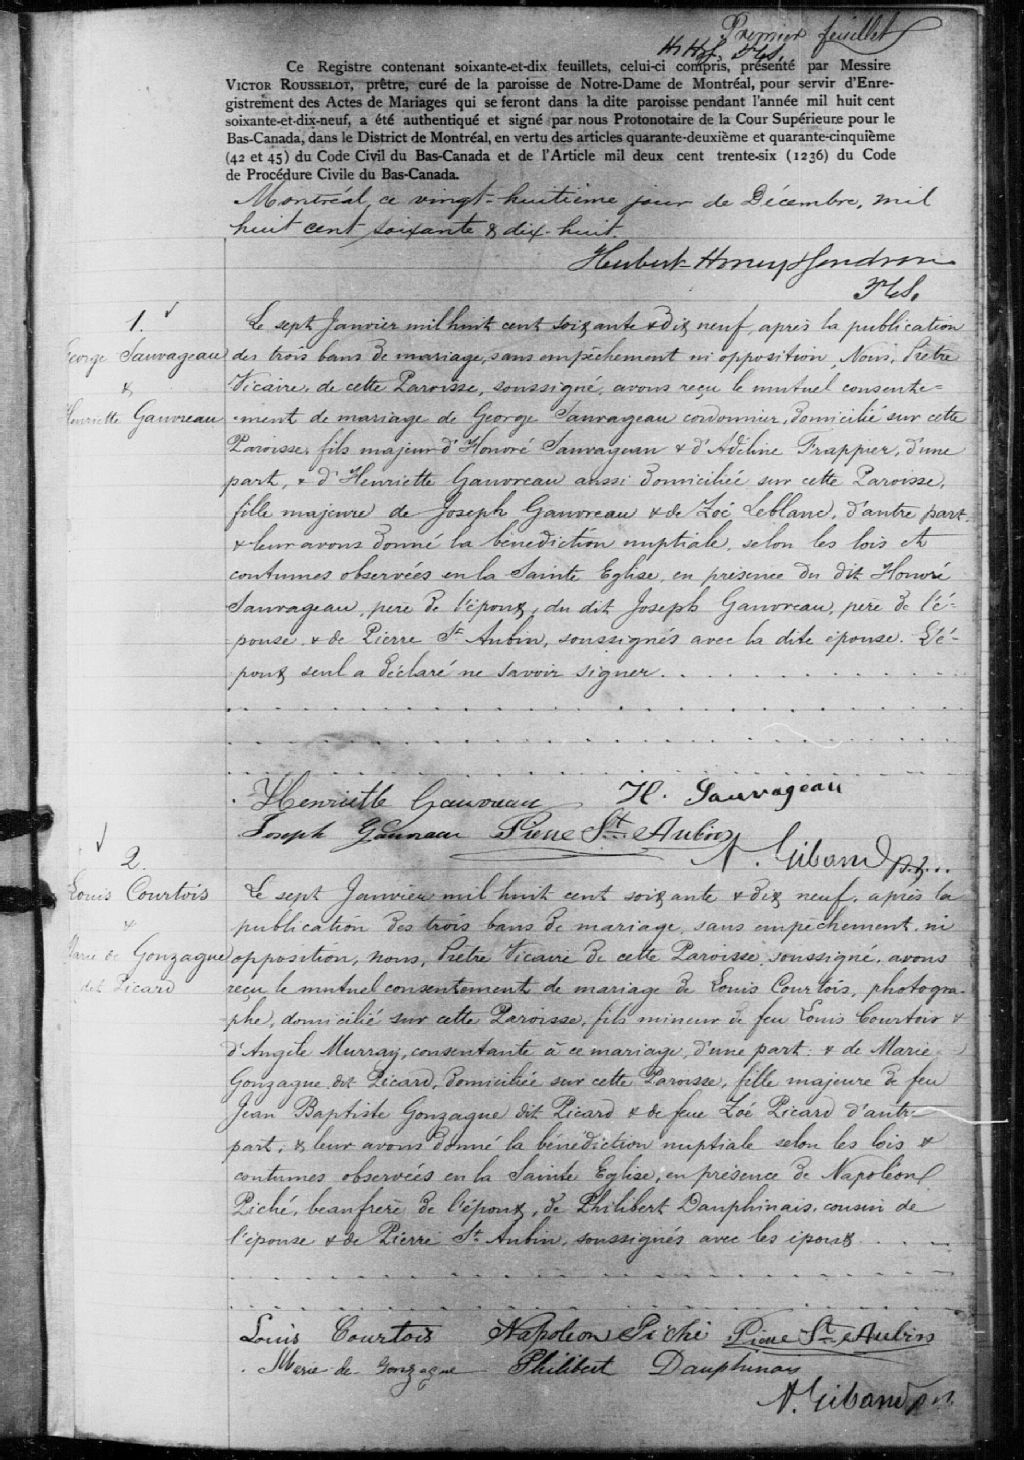 Premier feuillet
Ce Registre contenant soixante-et-dix feuillets, celui-ci compris, présenté par Messire
VICTOR ROUSSELOT, prêtre, curé de la paroisse de Notre-Dame de Montréal, pour servir d'Enre-
gistrement des Actes de Mariages qui se feront dans la dite paroisse pendant l'année mil huit cent
soixante-et-dix-neuf, a été authentiqué et signé par nous Protonotaire de la Cour Supérieure pour le
Bas-Canada, dans le District de Montréal, en vertu des articles quarante-deuxième et quarante-cinquième
(42 et 45) du Code Civil du Bas-Canada et de l'Article mil deux cent trente-six (1236) du Code
de Procédure Civile du Bas-Canada.
Montréal, ce vingt-huitième jour de Décembre, mil
huit cent soixante & dix-huit.
Hubert
1.
George Sauvageau
&
Henriette Gauvreau
Le sept Janvier mil huit cent soixante & dix neuf, après la publication
des trois bans de mariage, sans empêchement ni opposition, Nous, Prêtre
Vicaire, de cette Paroisse, soussigné, avons reçu le mutuel consente=
=ment de mariage de George Sauvageau cordonnier, domicilié sur cette
Paroisse, fils majeur d'Honoré Sauvageau & d'Adeline Frappier, d'une
part, & d'Henriette Gauvreau aussi domiciliée sur cette Paroisse,
fille majeure de Joseph Gauvreau & de Zoé Leblanc, d'autre part,
& leur avons donné la bénédiction nuptiale, selon les lois et
coutumes observées en la Sainte Eglise, en présence du dit Honoré
Sauvageau, père de l'époux, du dit Joseph Gauvreau, père de l'é-
pouse & de Pierre St Aubin, soussignés avec la dite épouse. L'é-
poux seul a déclaré ne savoir signer.
Henriette Gauvreau H. Sauvageau
Joseph Gauvreau Pierre St Aubin
N. Giband
2.
Louis Courtois
&
Marie de Gonzague
dit Picard
Le sept Janvier mil huit cent soixante & dix neuf, après la
publication des trois bans de mariage, sans empêchement ni
opposition, nous, Prêtre Vicaire de cette Paroisse soussigné, avons
reçu le mutuel consentement de mariage de Louis Courtois, photogra-
phe, domicilié sur cette Paroisse, fils mineur de feu Louis Courtois &
d'Angèle Murray, consentante à ce mariage, d'une part: & de Marie
Gonzague dit Picard, domiciliée sur cette Paroisse, fille majeure de feu
Jean Baptiste Gonzague dit Picard & de feue Zoé Picard d'autre
part, & leur avons donné la bénédiction nuptiale selon les lois &
coutumes observées en la Sainte Eglise, en présence de Napoléon
Piché, beaufrère de l'époux, de Philibert Dauphinais, cousin de
l'épouse & de Pierre St Aubin, soussignés avec les époux
Louis Courtois Napoleon Piché Pierre St Aubin
Marie de Gonzague Philibert Dauphinais
N. Giband